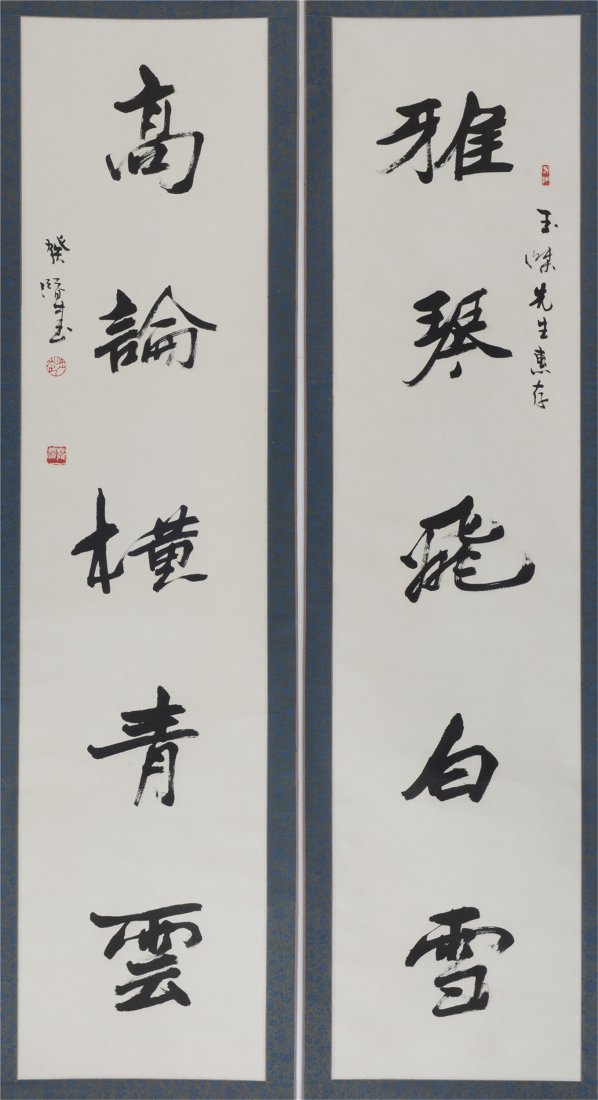 雅琴飛白雪
玉傑先生惠存
高論横青雲